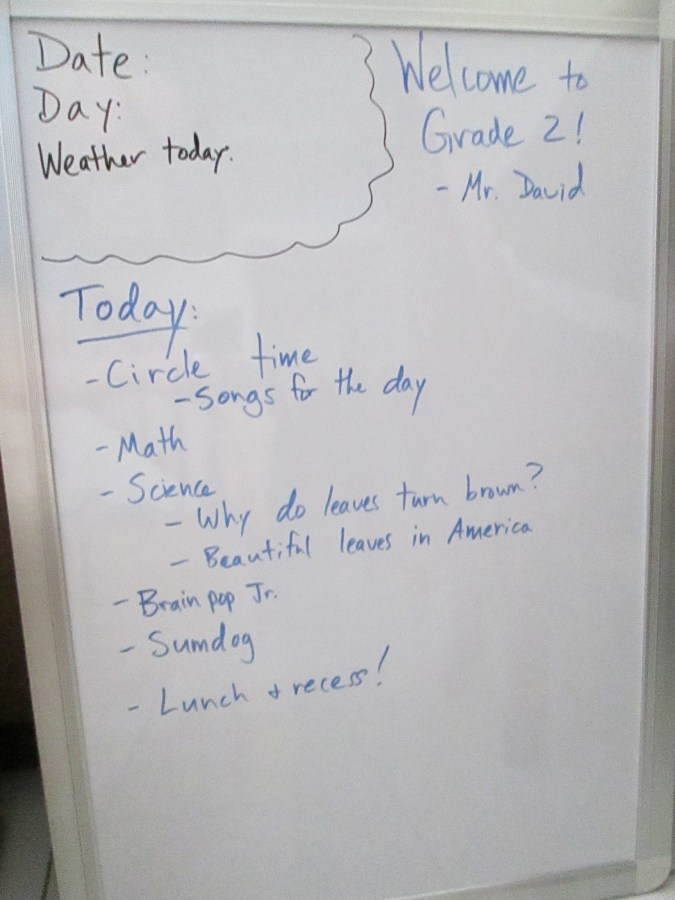 Date:
Day:
Weather today.
Welcome to
Grade 2!
- Mr. David
Today:
- Circle time
- Songs for the day
- Math
- Science
- Why do leaves turn brown?
- Beautiful leaves in America
- Brain pop Jr.
- Sumdog
- Lunch + recess!